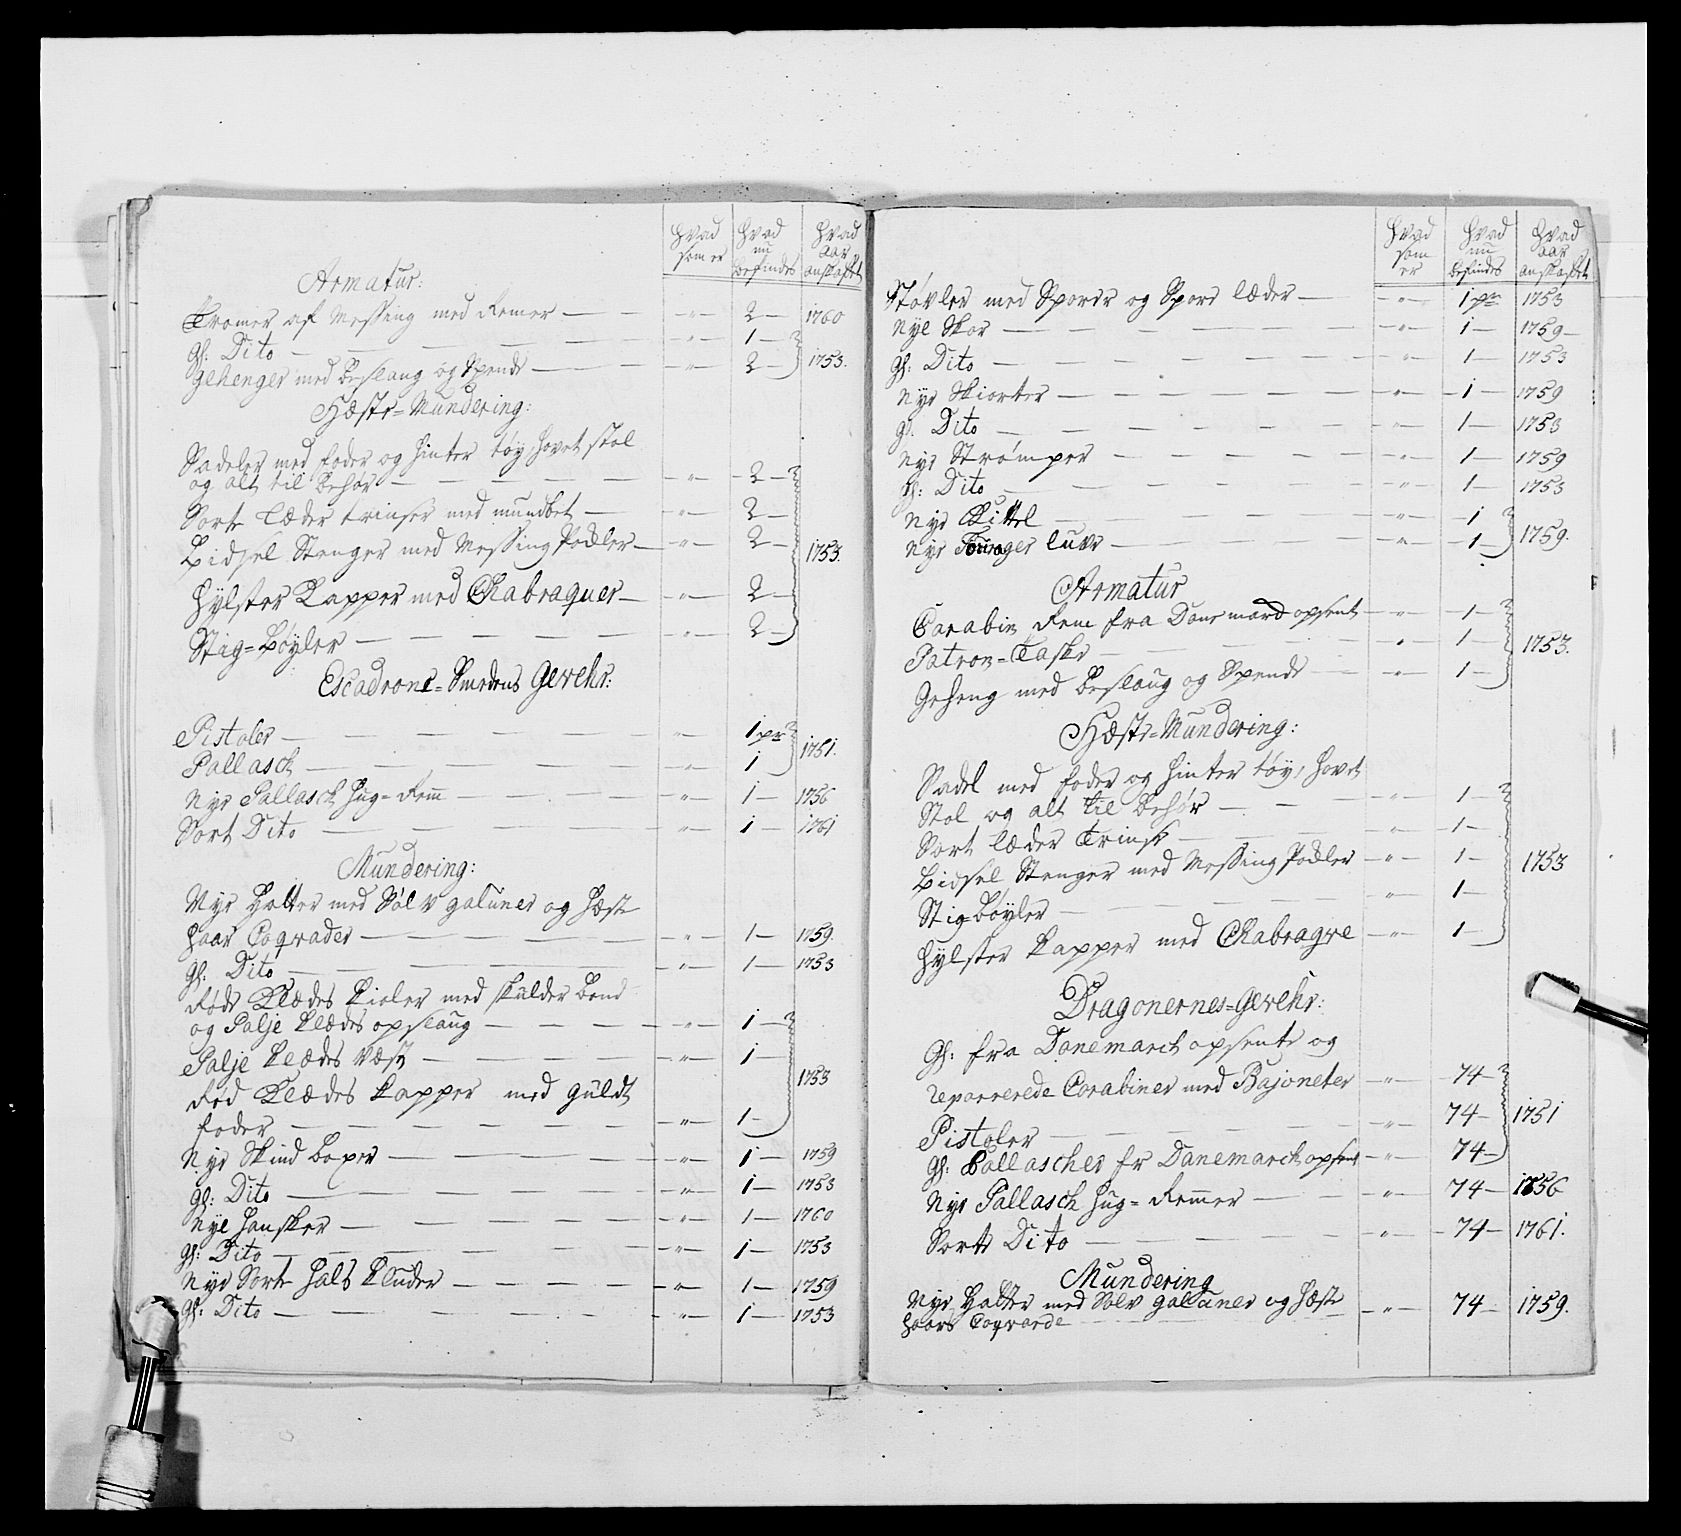 Hvad som er
Hvad nu befindes
Hvad aar anskaffet
Armatur:
Tromer af Messing med Remer — " — 2 — 1760
Gl: Dito — " — 1 —
Gehenger med beslaug og Spende — " — 2 — 1753.
Hæste-Mundering:
Sadeler med foder og hinter tøy, hovet stol
og alt til behør — " — 2 —
Sorte Læder trinser med mundbet — " — 2 —
Bidsel Stenger med Messing Podler — " — 2 — 1753.
Hylster Kapper med Chabraquer — " — 2 —
Stig-Bøyler — " — 2 —
Escadrone-Smedens Gevehr:
Pistoler — " — 1 pr
Pallasch — " — 1 1751.
Nye Pallasch hug-Rem — " — 1 — 1756
Sort Dito — " — 1 — 1761
Mundering:
Nye Hatter med Sølv galuner og hæste
haar Coqvader — " — 1 — 1759.
Gl: Dito — " — 1 — 1753
Røde Klædes Kioler med skulder bond
og Palje Klædes opslaug — " — 1 —
Palje Klædes Væst — " — 1 — 1753
Rød Klædes Kapper med guldt
foder — " — 1 —
Nye Skind boxer — " — 1 — 1759
gl: Dito — " — 1 — 1753
Nye Hansker — " — 1 — 1760
gl: Dito — " — 1 — 1753
Nye Sorte Hals Kluder — " — 1 — 1759
Gl: Dito — " — 1 — 1753
Hvad som er
Hvad nu befindes
Hvad aar anskaffet
Støvler med Sporer og Spore læder — " — 1 pr 1753
Nye Skoe — " — 1 — 1759 —
gl: Dito — " — 1 — 1753
Nye Skiorter — " — 1 — 1759
gl. Dito — " — 1 — 1753
Nye Strømper — " — 1 — 1759
gl: Dito — " — 1 — 1753
Nye Kittel — " — 1
Nye Fourager luer — " — 1 — 1759.
Armatur
Carabin Rem fra Danemarck opsent — " — 1 —
Patron-Taske — " — 1 — 1753.
Geheng med beslaug og Spende — " — 1 —
Hæste-Mundering:
Sadel med foder og hinter tøy, hovet
Stol og alt til behør — " — 1 —
Sort læder Trinse — " — 1 —
Bidsel Stenger med Messing Podler — " — 1 — 1753
Stig-bøyler — " — 1 —
Hylster Kapper med Chabraqve — " — 1 —
Dragonernes-Gevehr:
Gl: fra Danemarck opsente og
reparerede Carabiner med Bajoneter — " — 74 —
Pistoler — " — 74 — 1751
Gl: Pallascher fr Danemarck opsent — " — 74 —
Nye Pallasch hug-Remmer — " — 74 — 1756
Sorte Dito — " — 74 — 1761.
Mundering
Nye Hatter med Sølv galuner og Hæste — " — 74 — 1759.
haars Coqvarde